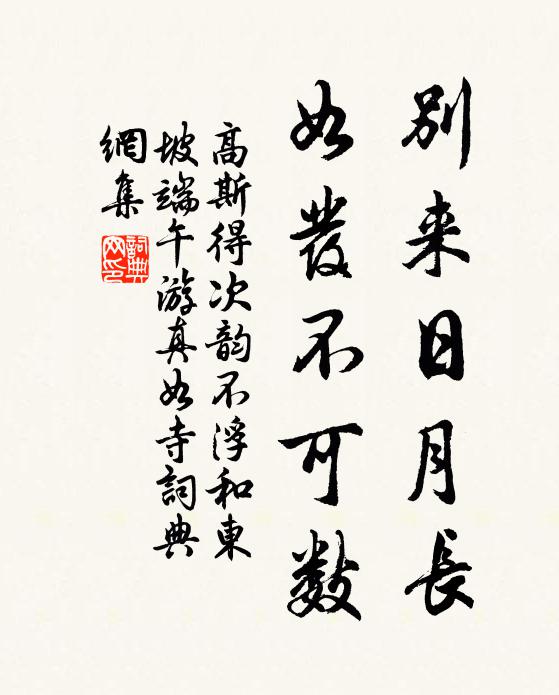 別来日月長
如發不可數
高斯得次韵不浮和東
坡端午游真如寺詞典
網集
詞典网印